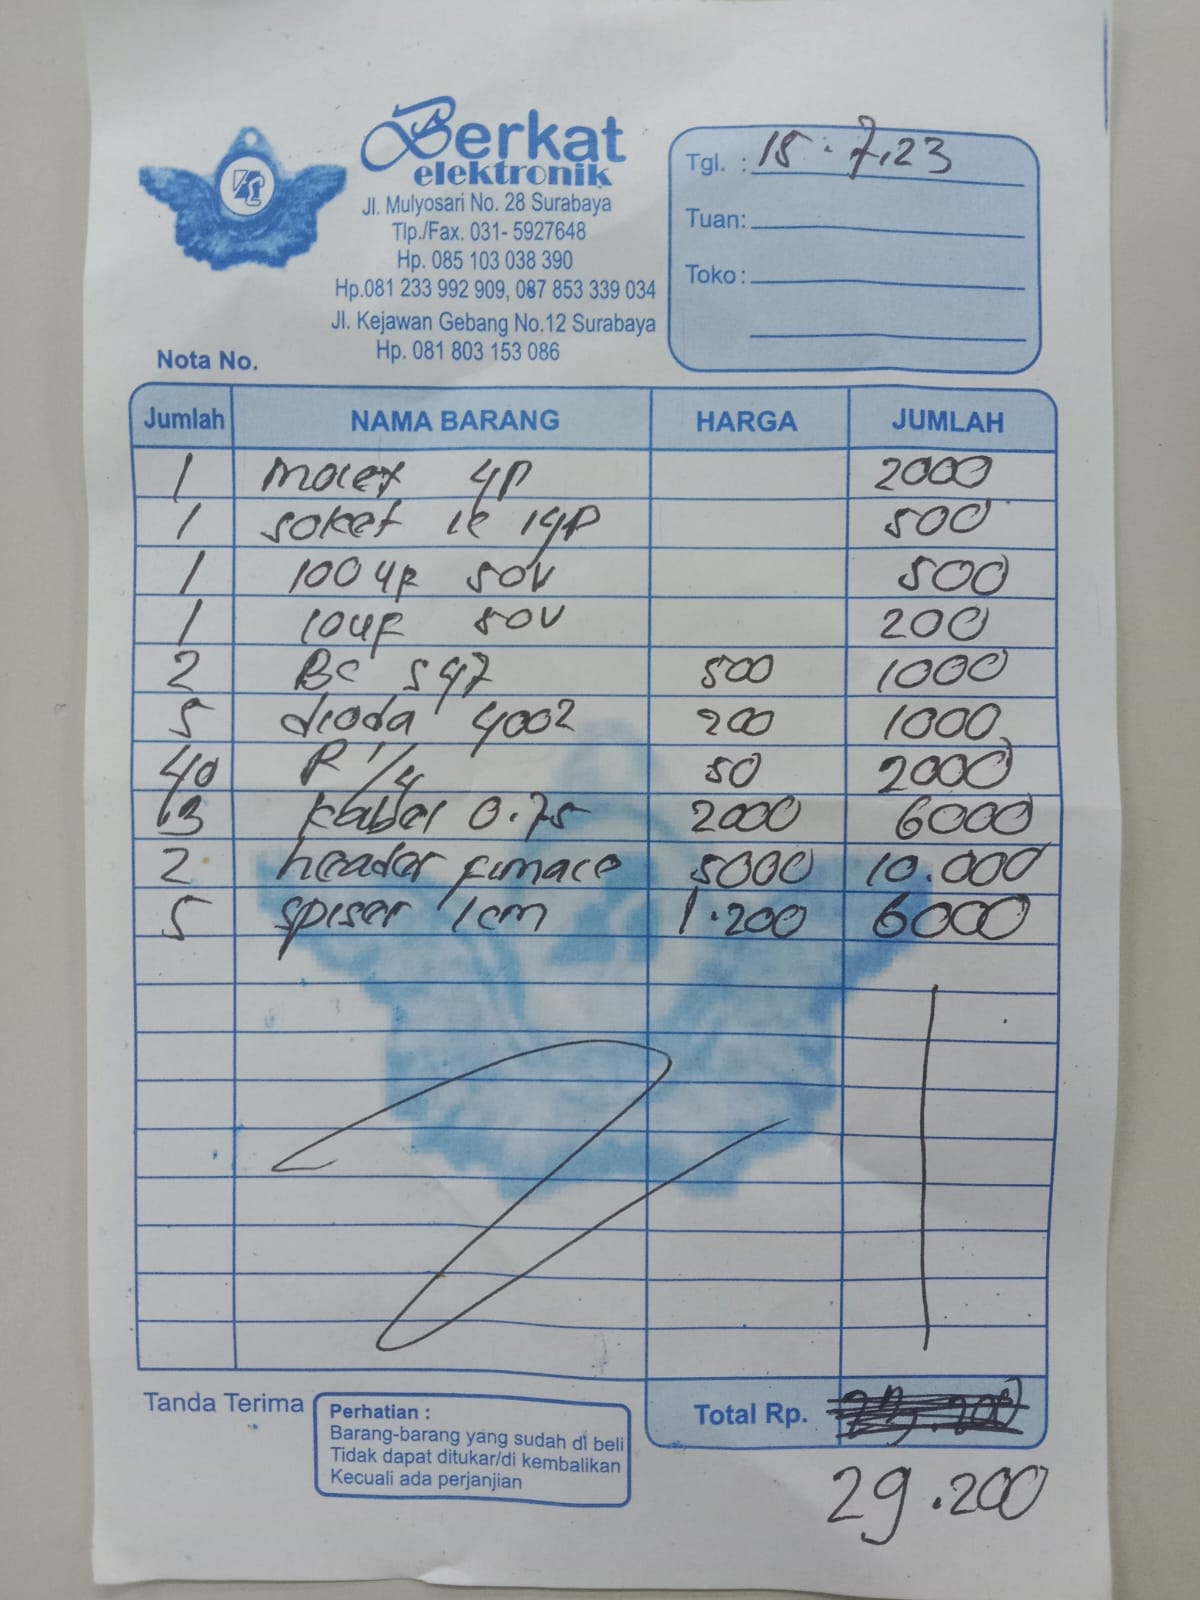 Berkat
elektronik
Jl. Mulyosari No. 28 Surabaya
Tlp./Fax. 031- 5927648
Hp. 085 103 038 390
Hp.081 233 992 909, 087 853 339 034
Jl. Kejawan Gebang No.12 Surabaya
Hp. 081 803 153 086
Tgl. : 15.7.23
Tuan:
Toko :
Nota No.
Jumlah NAMA BARANG HARGA JUMLAH
1 molex 4P 2000
1 soket ic 14P 500
1 100uf 50V 500
1 10uf 50V 200
2 BC 547 500 1000
5 dioda 4002 200 1000
40 R 1/4 50 2000
3 kabel 0.75 2000 6000
2 header 5000 10.000
5 spiser 1cm 1.200 6000
Total Rp.
29.200
Tanda Terima
Perhatian :
Barang-barang yang sudah di beli
Tidak dapat ditukar/di kembalikan
Kecuali ada perjanjian